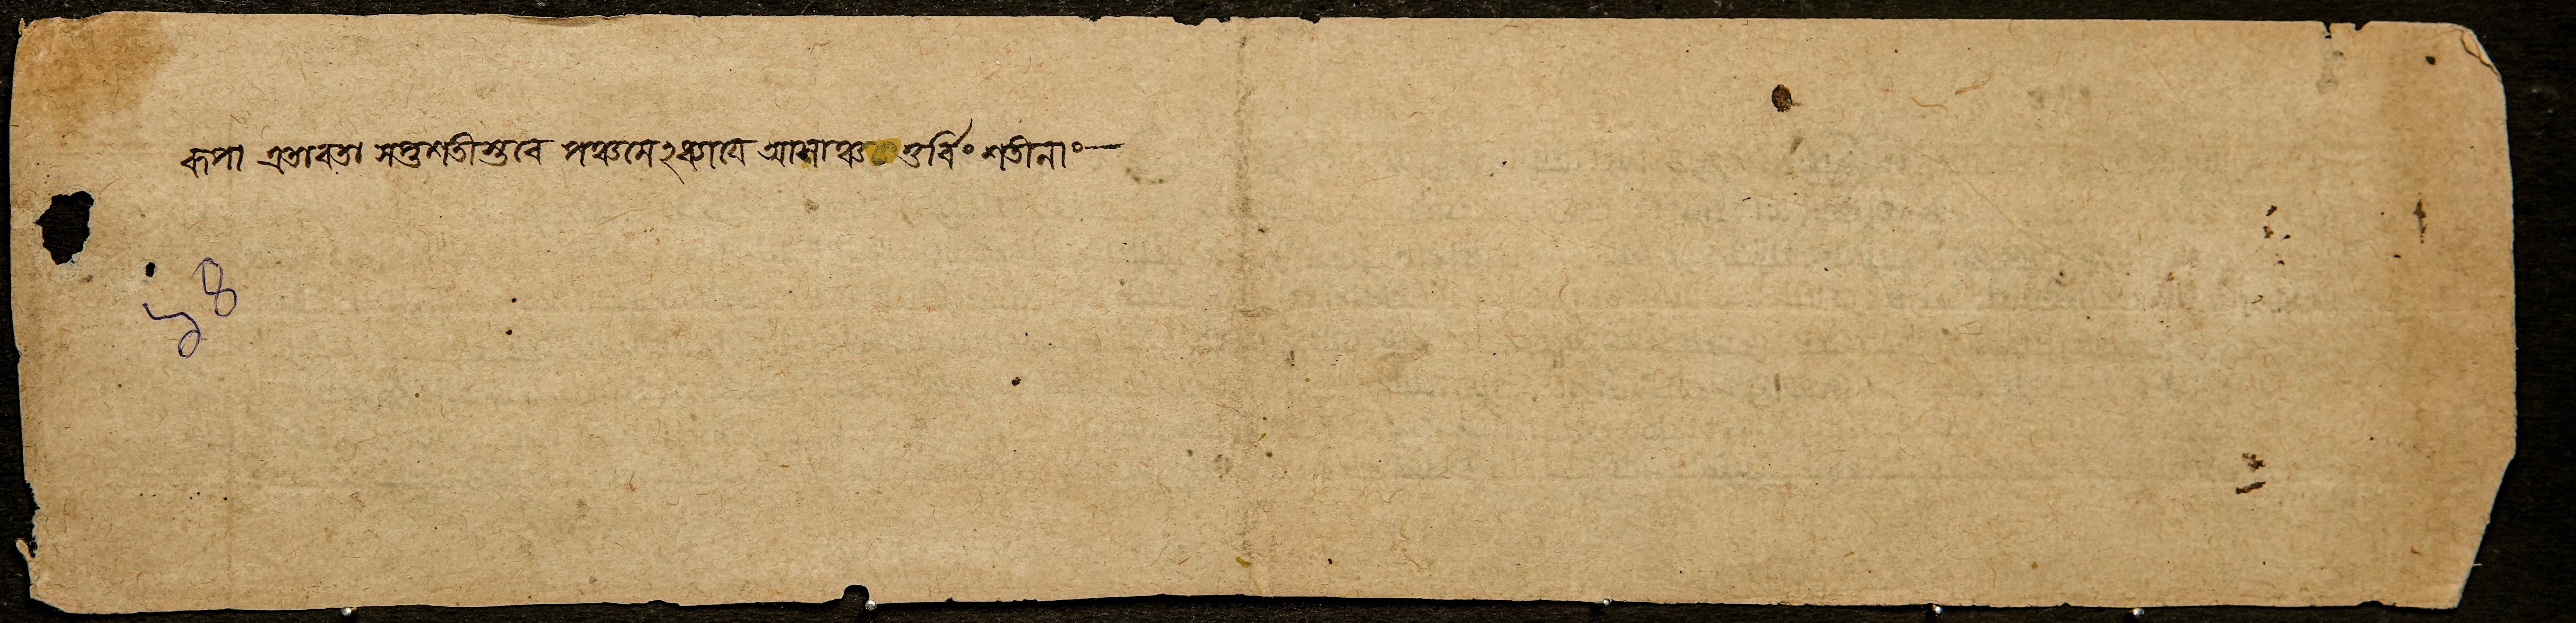 রূপা এতাবতা সপ্তশতীস্তবে পঞ্চমেঽধ্যায়ে আসাঞ্চ তুর্বিংশতীনাং
১৪